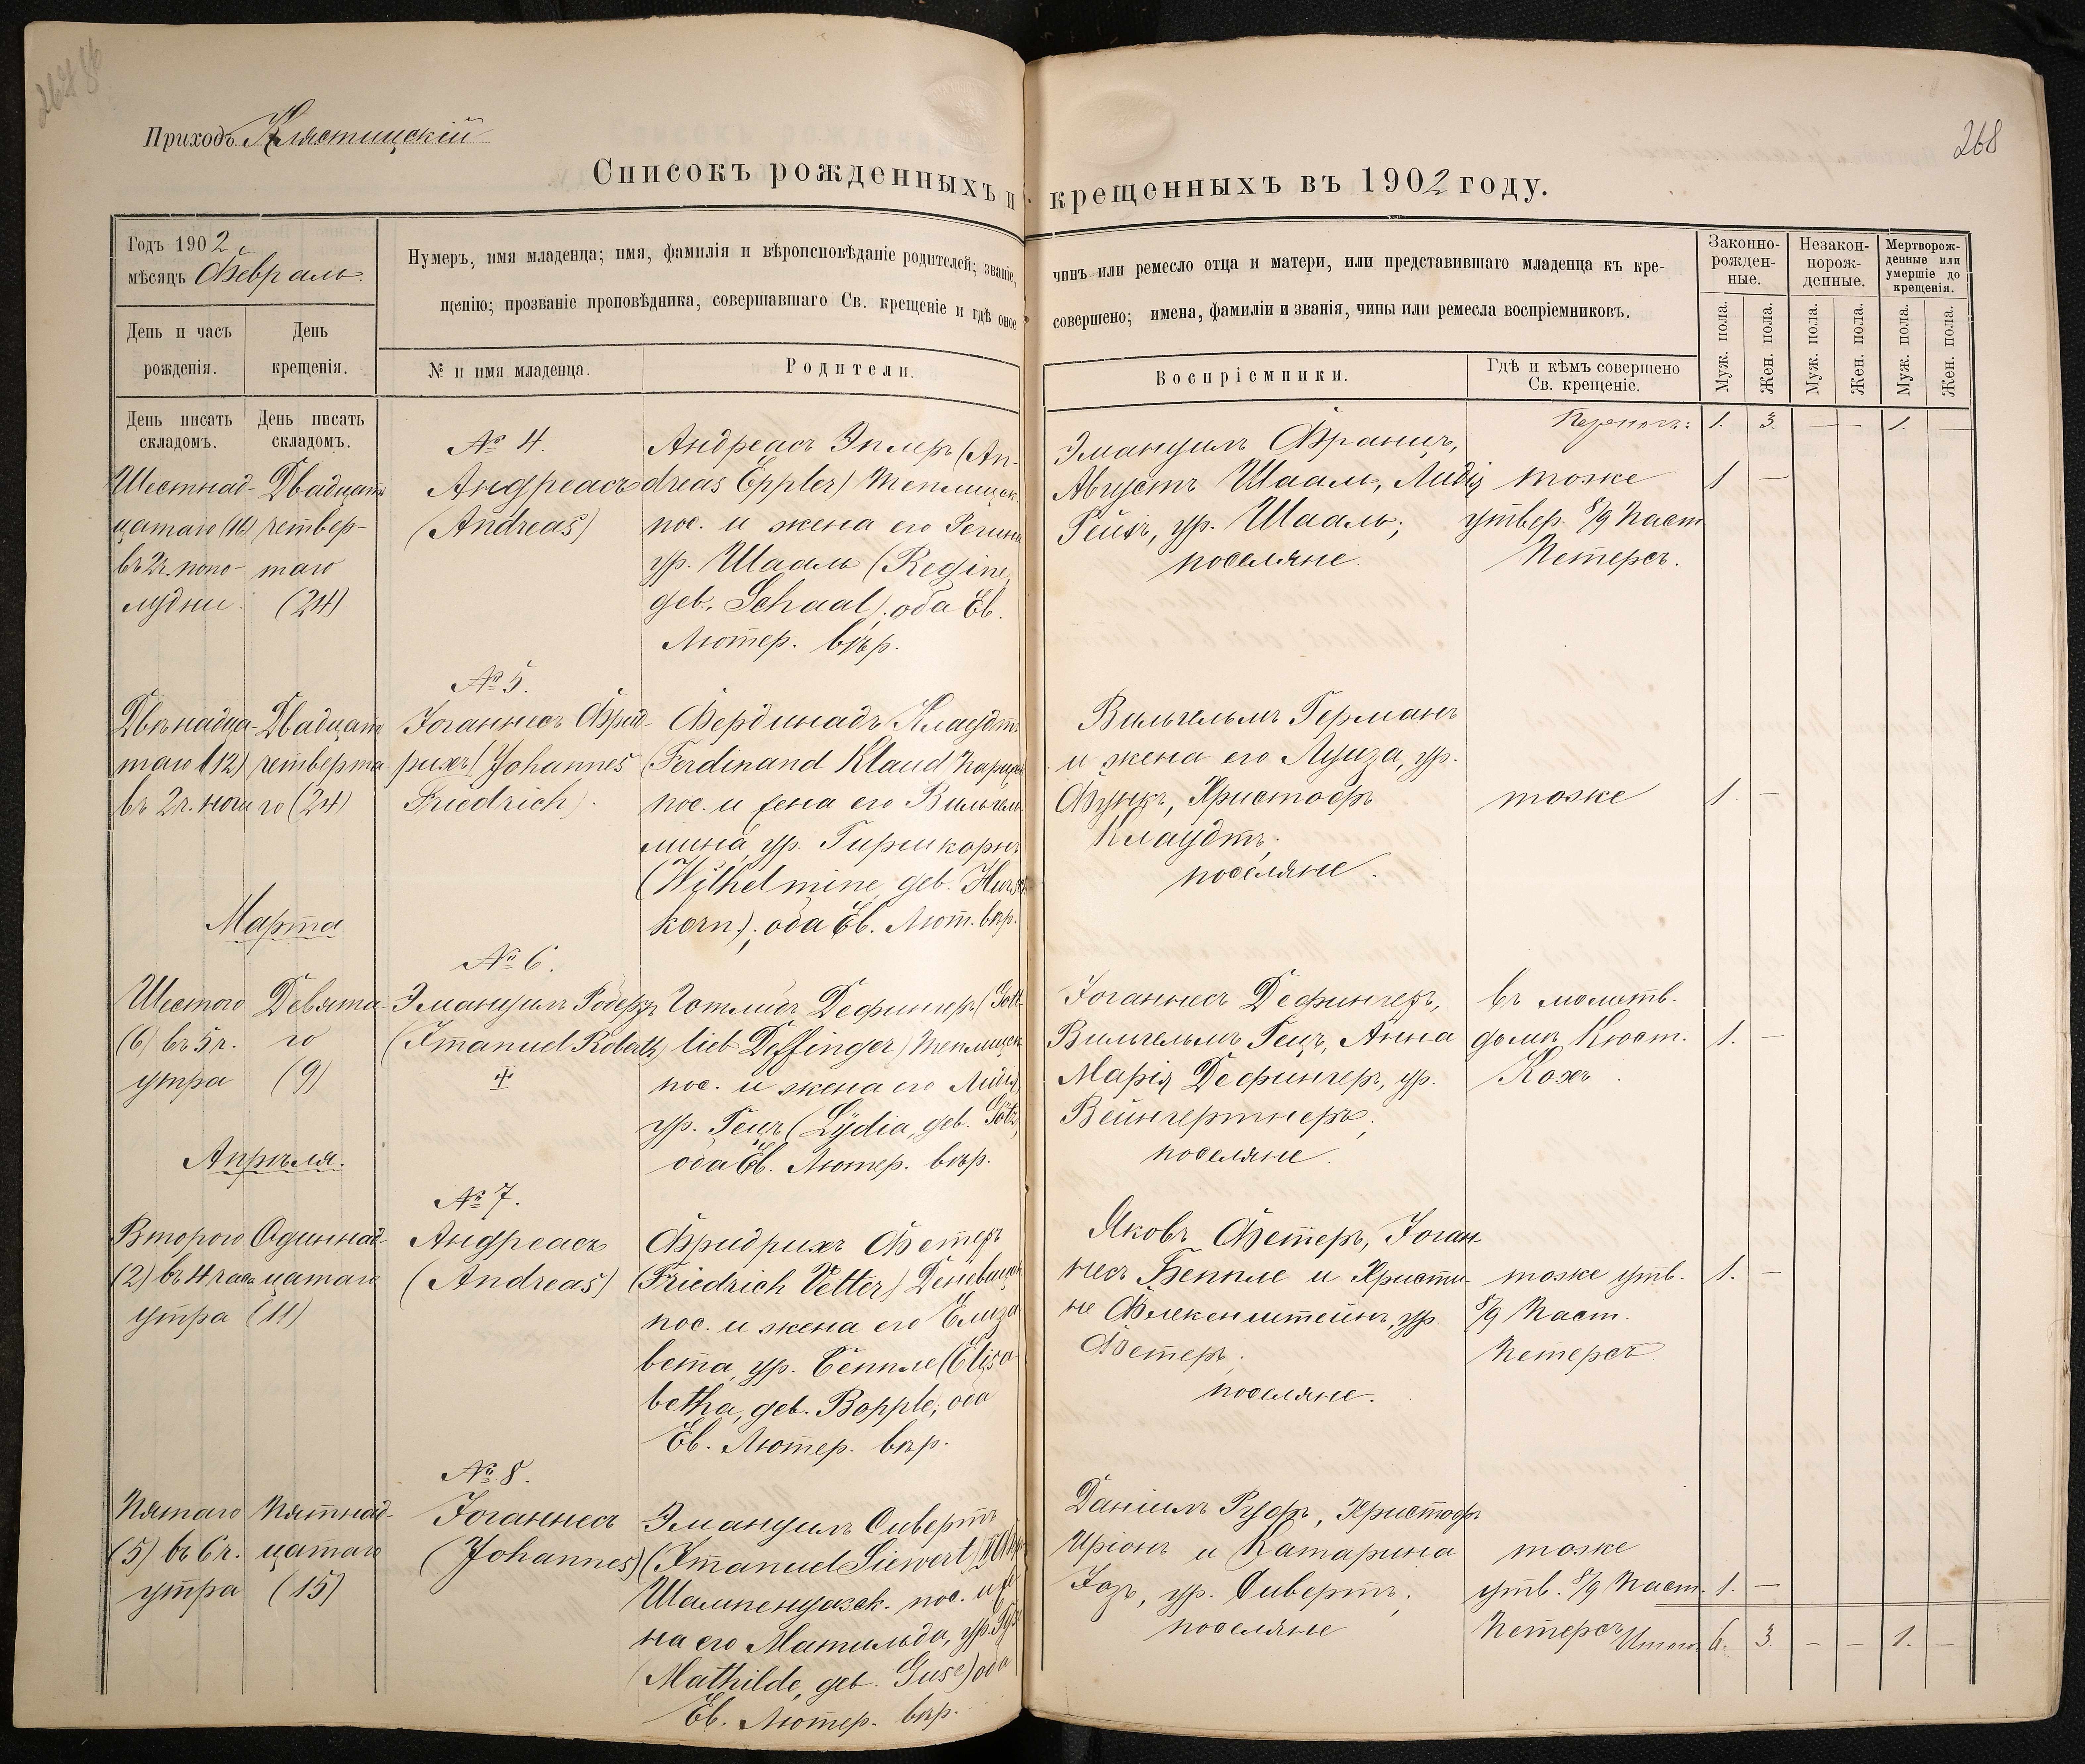 268
Приходъ Клястицскій
Списокъ рожденныхъ и крещенныхъ въ 1902 году.
Годъ 1902,
мѣсяцъ Февраль.
Нумеръ, имя младенца; имя, фамилія и вѣроисповѣданіе родителей; званіе, чинъ или ремесло отца и матери, или представившаго младенца къ кре-
щенію; прозваніе проповѣдника, совершавшаго Св. крещеніе и гдѣ оное совершено; имена, фамиліи и званія, чины или ремесла воспріемниковъ.
Законно-
рожден-
ные.
Незакон-
норож-
денные.
Мертворож-
денные или
умершіе до
крещенія.
День и часъ
рожденія.
День
крещенія.
№ и имя младенца.
Родители.
Воспріемники.
Гдѣ и кѣмъ совершено
Св. крещеніе.
Муж. пола.
Жен. пола.
Муж. пола.
Жен. пола.
Муж. пола.
Жен. пола.
День писать
складомъ.
День писать
складомъ.
Перенось: 1. 3. — — 1. —
№ 4.
Шестнад-
цатаго (16)
въ 2 ч. попо-
лудни.
Двадцать
четвер-
таго
(24)
Андреасъ
(Andreas)
Андреасъ Эплеръ (An-
dreas Eppler) Теплицск.
пос. и жена его Регина
ур. Шааль (Regine,
geb. Schaal), оба Ев.
Лютер. вѣр.
Эмануилъ Францъ,
Августъ Шааль, Лидія
ур. Шааль;
поселяне.
тоже
утвер. 8/9 Паст
Петерсъ.
1 —
№ 5.
Двѣнадца-
таго (12)
въ 2 ч. ночи
Двадцать
четверта-
го (24)
Іоганнесъ Фрид-
рихъ (Johannes
Friedrich).
Фердинадъ Клаудтъ
(Ferdinand Klaud
пос. и жена его Вильгель
мина, ур. Гиршкорнъ
(Wilhelmine, geb. Hirsch
korn), оба Ев. Лют. вѣр.
Вильгельмъ Германъ
и жена его Луиза, ур.
Функъ, Христофъ
Клаудтъ;
поселяне.
тоже
1. —
Марта
№ 6.
Шестого
(6) въ 5 ч.
утра
Девята-
го
(9)
Эмануилъ
(Imanuel Roberth)
Готлибъ Дефингеръ (Gott-
lieb Deffinger) Теплицск
пос. и жена его Лидія
ур. Гецъ (Lydia, geb. Götz)
оба Ев. Лютер. вѣр.
Іоганнесъ Дефингеръ,
Вильгельмъ Гецъ, Анна
Марія Дефингеръ, ур.
Вейнгертнеръ;
поселяне.
въ молитв.
домѣ Кюст.
Кохъ.
1. —
Апрѣля.
№ 7.
Второго
(2) въ 4 часа
утра
Одиннад-
цатаго
(11)
Андреасъ
(Andreas)
Фридрихъ Фетеръ
(Friedrich Vetter) Деневицск
пос. и жена его Елиза
вета, ур. Беппле (Elisa-
betha, geb. Bopple, оба
Ев. Лютер. вѣр.
Яковъ Фетеръ, Іоган-
несъ Беппле и Христи-
не Флекенштейнъ, ур.
Фетеръ;
поселяне.
тоже утв.
8/9 Паст.
Петерсъ
1. —
№ 8.
Пятаго
(5) въ 6 ч.
утра
Пятнад-
цатаго
(15)
Іоганнесъ
(Johannes)
Эмануилъ Сивертъ
(Imanuel Siewert)
Шампенуазск. пос. и же
на его Матильда, ур.
(Mathilde, geb. Guse) оба
Ев. Лютер. вѣр.
Даніилъ Руфъ, Христофъ
Иріонъ и Катарина
ур. Сивертъ;
поселяне
тоже
утв. 8/9 Паст.
Петерсъ
1. —
Итого 6. 3. — — 1. —